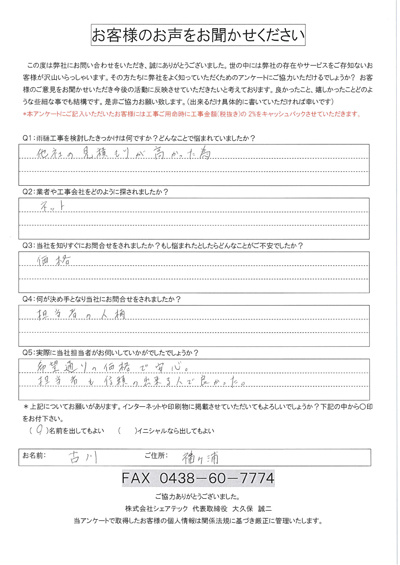 お客様のお声をお聞かせください
この度は弊社にお問い合わせをいただき、誠にありがとうございました。世の中には弊社の存在やサービスをご存知ないお
客様が沢山いらっしゃいます。その方たちに弊社をよく知っていただくためのアンケートにご協力いただけるでしょうか？ お客
様のご意見をお聞かせいただき今後の活動に反映させていただきたいと考えております。良かったこと、嬉しかったことどのよ
うな些細な事でも結構です。是非ご協力お願い致します。（出来るだけ具体的に書いていただければ幸いです）
*本アンケートにご記入いただいたお客様には工事ご用命時に工事金額(税抜き)の 2%をキャッシュバックさせていただきます。
Q1:雨樋工事を検討したきっかけは何ですか？どんなことで悩まれていましたか？
他社の見積もりが高かった為
Q2:業者や工事会社をどのように探されましたか？
ネット
Q3:当社を知りすぐにお問合せをされましたか？もし悩まれたとしたらどんなことがご不安でしたか？
価格
Q4:何が決め手となり当社にお問合せをされましたか？
担当者の人柄
Q5:実際に当社担当者がお伺いしていかがでしたでしょうか？
希望通りの価格で安心。
担当者も信頼の出来る人で良かった。
＊上記についてお願いがあります。インターネットや印刷物に掲載させていただいてもよろしいでしょうか？下記の中から〇印
をお付下さい。
（〇）名前を出してもよい （ ）イニシャルなら出してもよい
お名前: 古川 ご住所: 袖ヶ浦
FAX 0438-60-7774
ご協力ありがとうございました。
株式会社シェアテック 代表取締役 大久保 誠二
当アンケートで取得したお客様の個人情報は関係法規に基づき厳正に管理いたします。